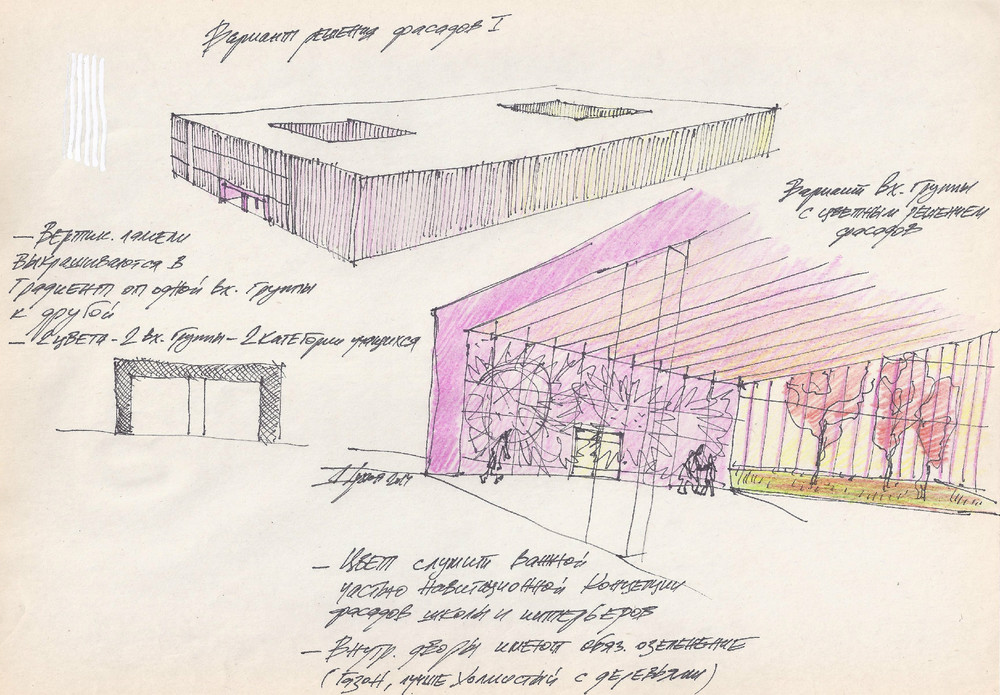 Вариант решения фасадов I
Вариант вх. группы
с цветным решением
фасадов
– Вертик. ламели
выкрашиваются в
градиент от одной вх. группы
к другой
– 2 цвета – 2 вх. группы – 2 категории учащихся
– Цвет служит важной
частью навигационной концепции
фасадов школы и интерьеров
– Внутр. дворы имеют обяз. озеленение
(газон, лучше холмистый с деревьями)